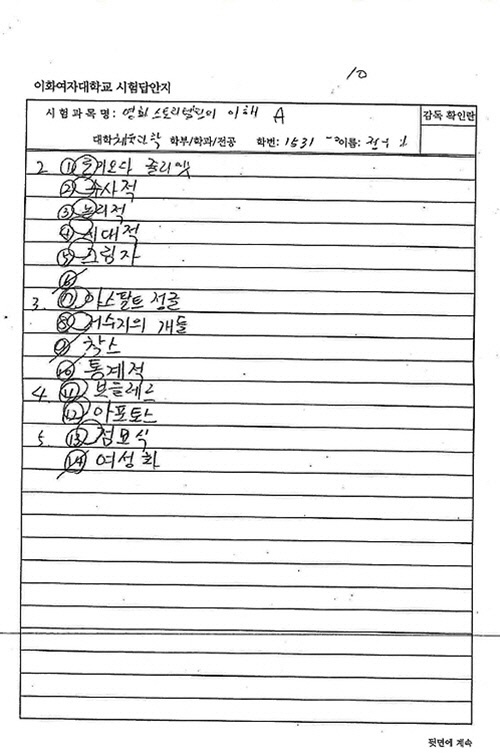 10
이화여자대학교 시험답안지
시험과목명: 영화스토리텔링의 이해 A 감독 확인란
대학 체육과학 학부/학과/전공 학번: 1531 이름:
2 ① 줄리오다 줄리엣
② 수사적
③ 논리적
④ 시대적
⑤ 그림자
⑥
3. ⑦ 아스팔트 정글
⑧ 저수지의 개들
⑨ 착스
⑩ 통계적
4. ⑪ 보들레르
⑫ 아포토스
5 ⑬ 점묘식
⑭ 여성화
뒷면에 계속